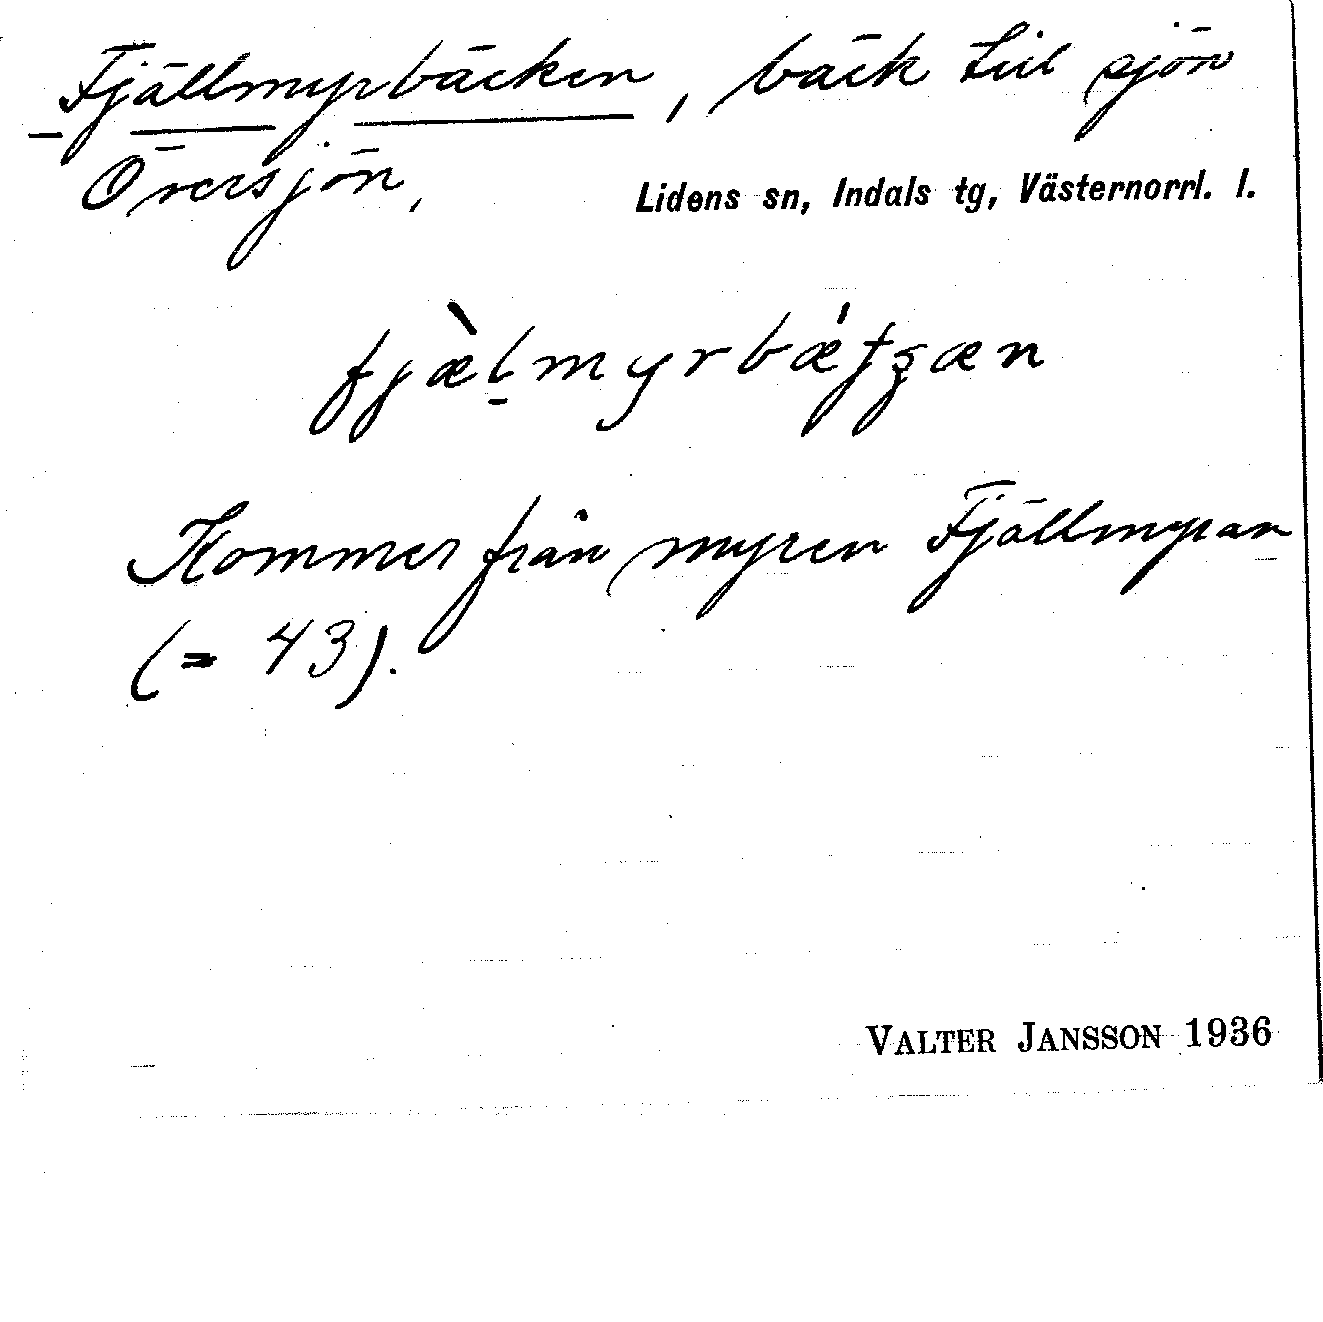 Fjällmyrbäcken, bäck till sjön
Översjön,
Lidens sn, Indals tg, Västernorrl. l.
Kommer från myren Fjällmyran
(= 43).
VALTER JANSSON 1936